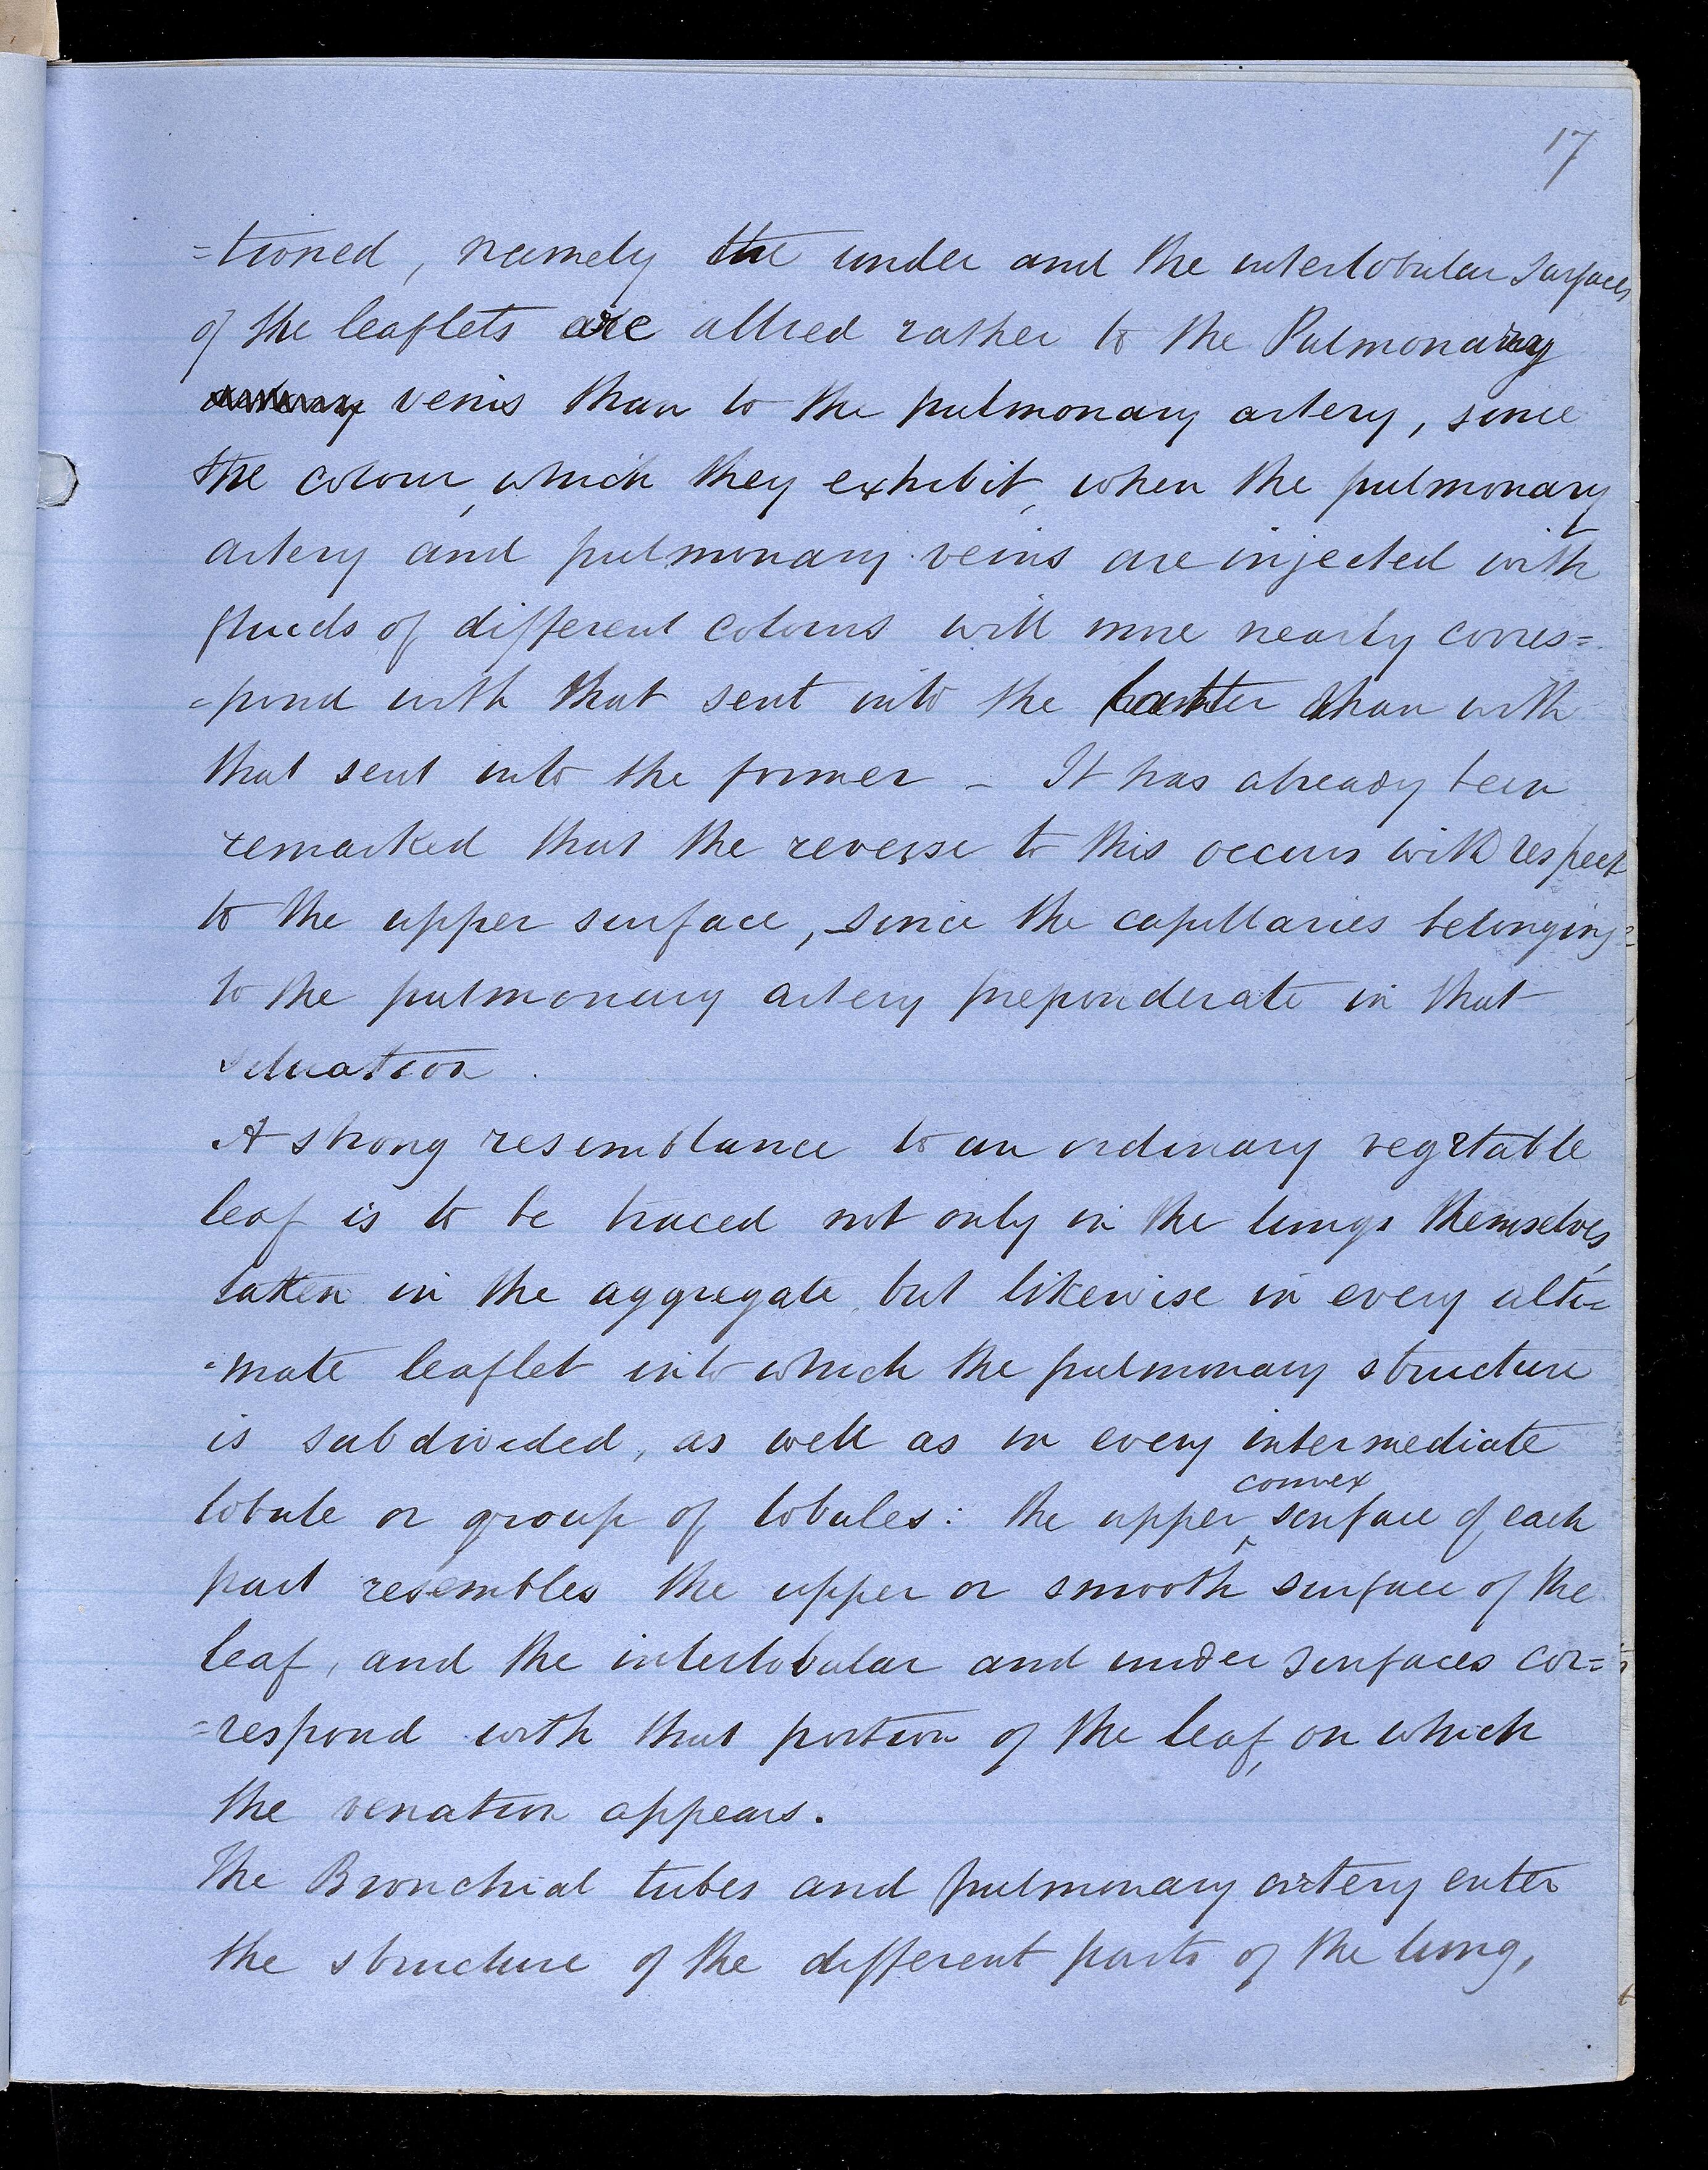 17
=tioned, namely the under and the interlobular surfaces
of the leaflets are allied rather to the Pulmonary
veins than to the pulmonary artery, since
the colour, which they exhibit, when the pulmonary
artery and pulmonary veins are injected with
fluids of different colours will more nearly corres=
=pond with that sent into the latter than with
that sent into the former - It has already been
remarked that the reverse to this occurs with respect
to the upper surface, since the capillaries belonging
to the pulmonary artery preponderate in that
situation.
A strong resemblance to an ordinary vegetable
leaf is to be traced not only in the lungs themselves,
taken in the aggregate, but likewise in every ulti=
=mate leaflet into which the pulmonary structure
is subdivided, as well as in every intermediate
convex
lobule or group of lobules: the upper ^ surface of each
part resembles the upper or smooth surface of the
leaf, and the interlobular and under surfaces cor=
=respond with that portion of the leaf, on which
the venation appears.
The Bronchial tubes and pulmonary artery enter
the structure of the different parts of the lung,